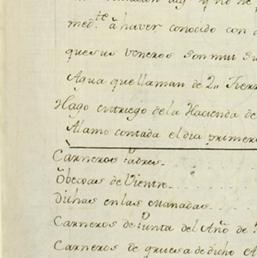 med.te à haver conocido con
que sus veneros son mui
Agua que llaman de
Hago entriego de la Hacienda de
Alamo contada el dia primero
Carneros Padres
Obejas de Vientre
Dichas en las Manadas
Carneros de Punta del Año de
Carneros de gruesa de dicho